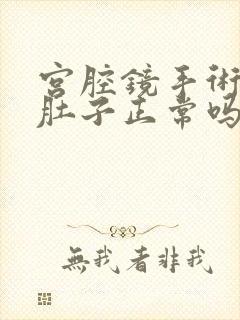 宫腔镜手术
肚子正常吗
無我者非我